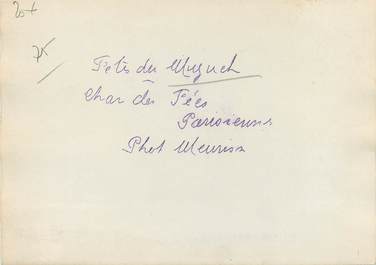 20+
75
Fetes du Muguet
Char des Fées
Parisiennes
Phot Meuriss